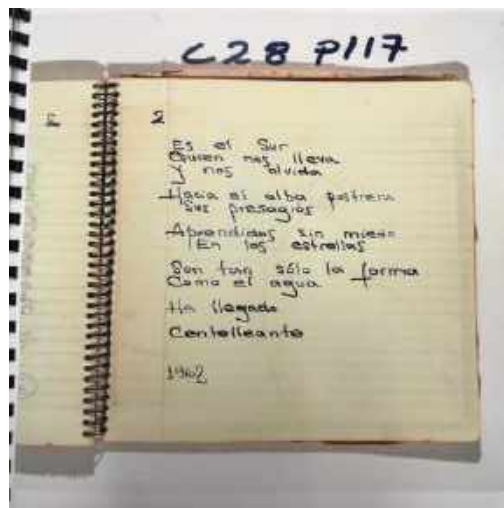 C28 P117
2
Es el Sur
Quien nos lleva
Y nos olvida
Hacia el alba postrera
Sus presagios
Aprendidos sin miedo
En las estrellas
Son tan sólo la forma
Como el agua
Ha llegado
Centelleante
1962